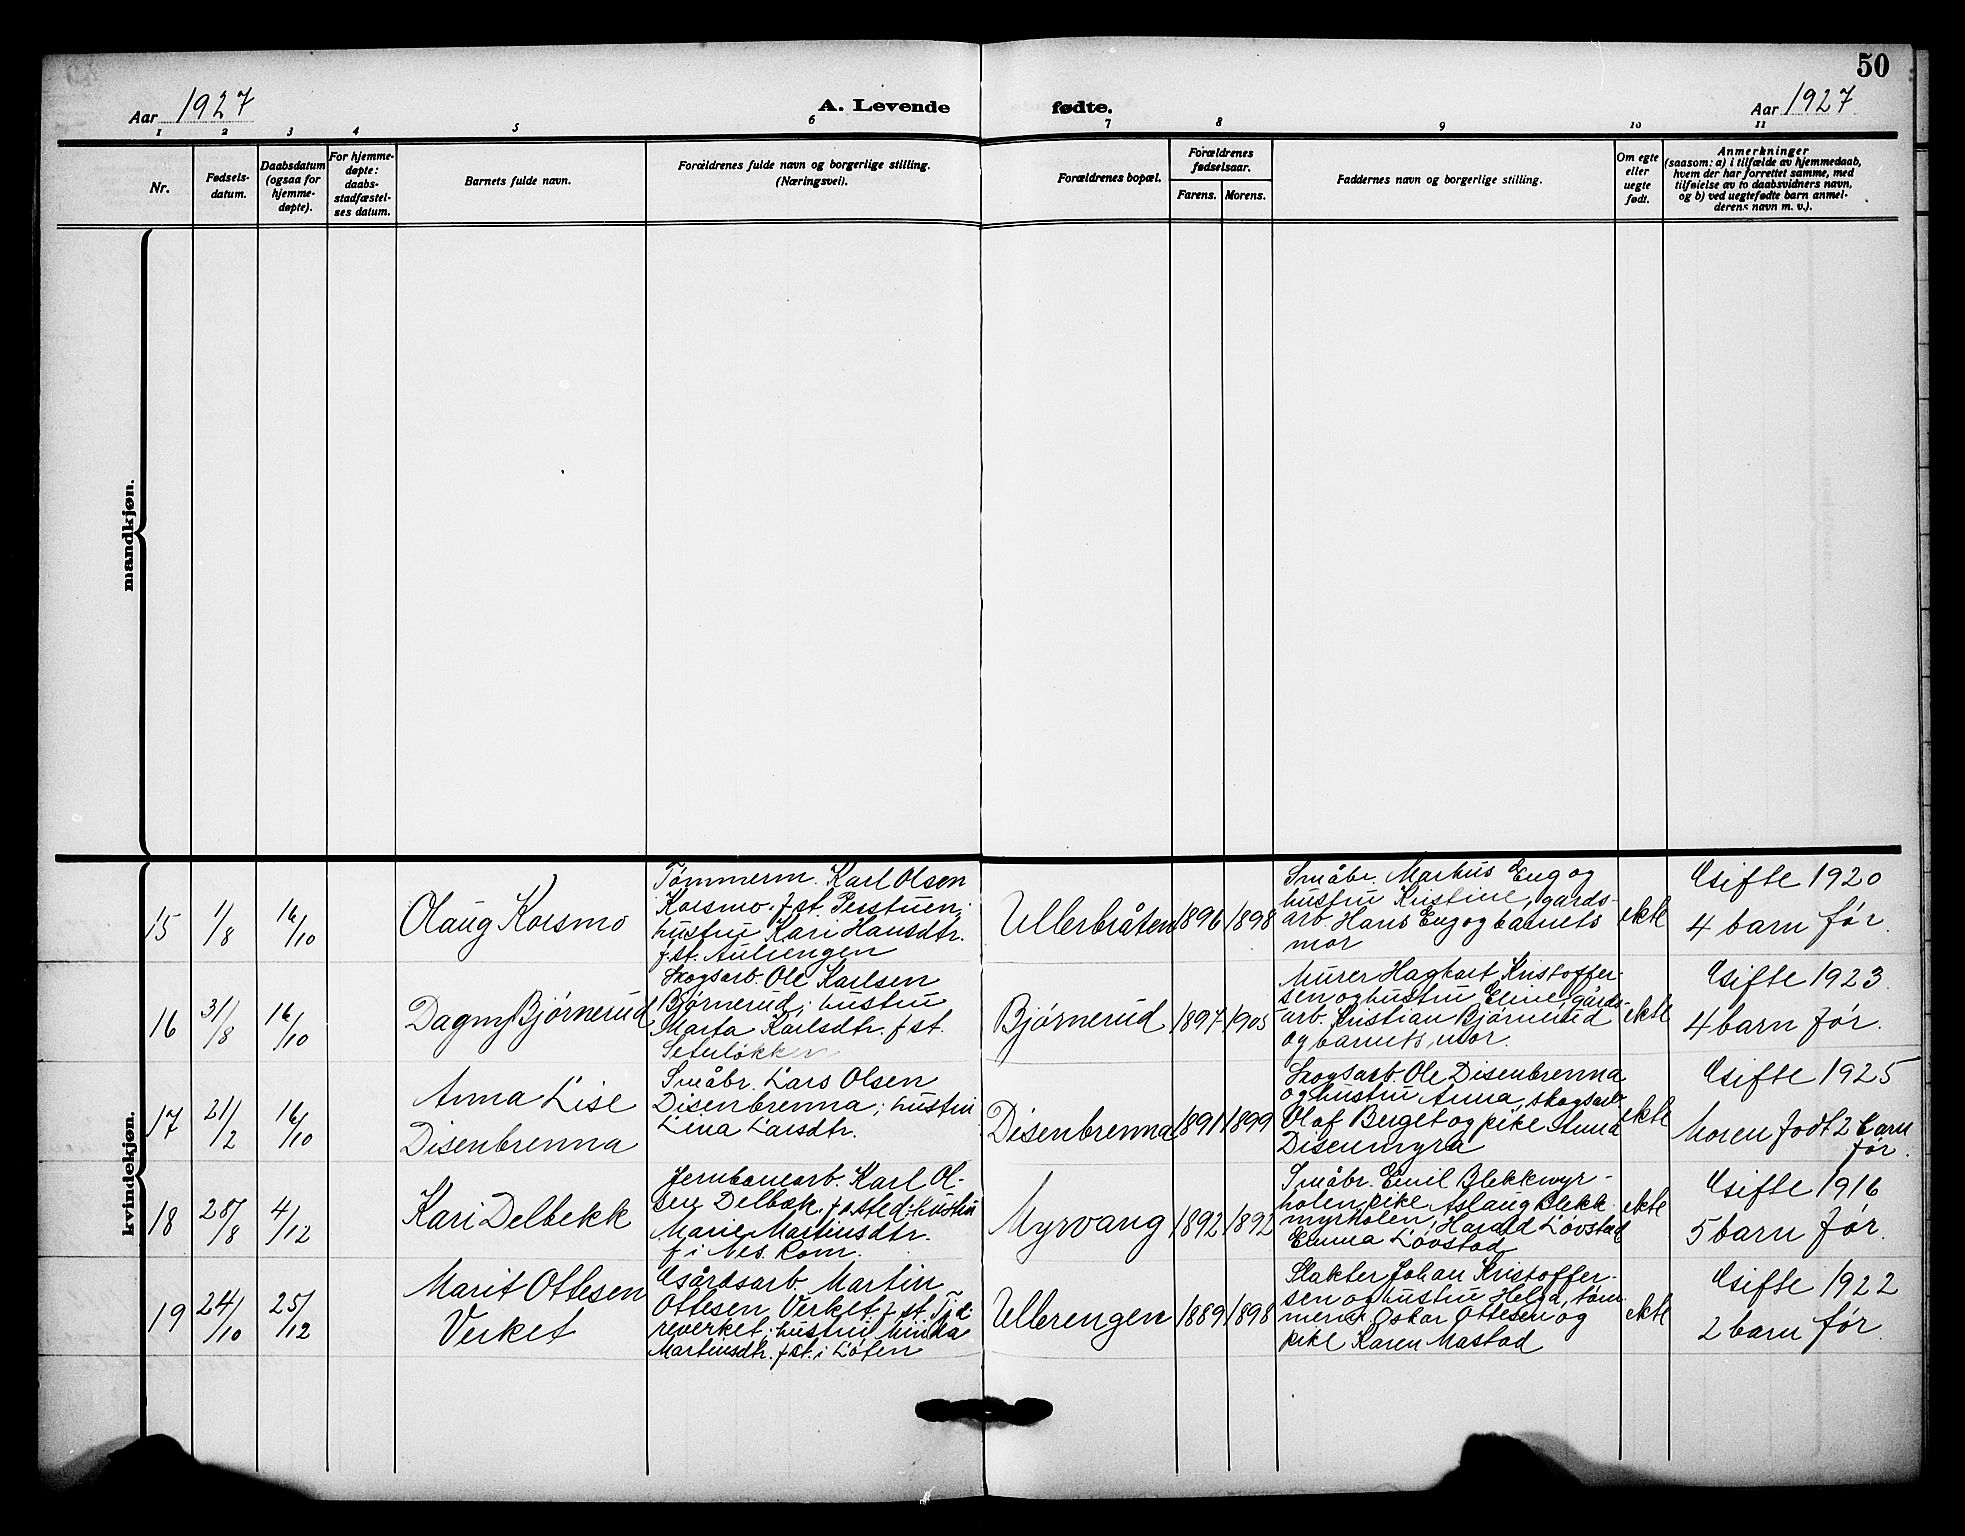 50
Aar 1927
A. Levende fødte.
Aar 1927
1 2 3 4 5 6 7 8 9 10 11
Nr.
Fødsels-
datum.
Daabsdatum
(ogsaa for
hjemme-
døpte).
For hjemme-
døpte:
daabs-
stadfæstel-
ses datum.
Barnets fulde navn.
Forældrenes fulde navn og borgerlige stilling.
(Næringsvei).
Forældrenes bopæl.
Forældrenes
fødselsaar.
Farens. Morens.
Faddernes navn og borgerlige stilling.
Om egte
eller
uegte
født.
Anmerkninger
(saasom: a) i tilfælde av hjemmedaab,
hvem der har forrettet samme, med
tilføielse av to daabsvidners navn,
og b) ved uegtefødte barn anmel-
derens navn m. v.).
mandkjøn.
kvindekjøn.
15
1/8
16/10
Olaug Korsmo
Tømmerm. Karl Olsen
Korsmo. f. st. Perstuen;
hustru Kari Hansdtr.
f. st. Auliengen
Ullerbråten
1896
1898
Småbr. Markus Eng og
hustru Kristine, gårds-
arb. Hans Eng og barnets
mor
ekte
Gifte 1920
4 barn før.
16
31/8
16/10
Dagny Bjørnerud
Skogsarb. Ole Karlsen
Bjørnerud; hustru
Marta Karlsdtr. f. st.
Seterløkken
Bjørnerud
1897
1905
Murer Hagbart Kristoffer-
sen og hustru Eline, gårds-
arb. Kristian Bjørnerud
og barnets mor.
ekte
Gifte 1923
4 barn før.
17
21/2
16/10
Anna Lise
Disenbrenna
Småbr. Lars Olsen
Disenbrenna; hustru
Lina Larsdtr.
Disenbrenna
1891
1899
Skogsarb. Ole Disenbrenna
og hustru Anna, skogsarb.
Olaf Berget og pike Anna
Disenmyra
ekte
Gifte 1925
Moren født 2 barn
før.
18
/8
4/12
Kari Delbekk
Jernbanearb. Karl Ol-
sen Delbæk. f. sted; hustru
Marie Martinsdtr.
f. i Nes. Rom.
Myrvang
1892
Småbr. Emil Blekkmyr-
holen, pike Aslaug Blekk-
myrholen, Harald Løvstad
Emma Løvstad
ekte
Gifte 1916
5 barn før.
19
24/10
25/12
Marit Ottesen
Verket
Gårdsarb. Martin
Ottesen Verket f. st. Tjæ-
reverket; hustru Minda
Martinsdtr. f. st. i Løten
Ullerengen
1889
1898
Slakter Johan Kristoffer-
sen og hustru Helga, tøm-
merm. Oskar Ottesen og
pike Karen Mastad
ekte
Gifte 1922
2 barn før.